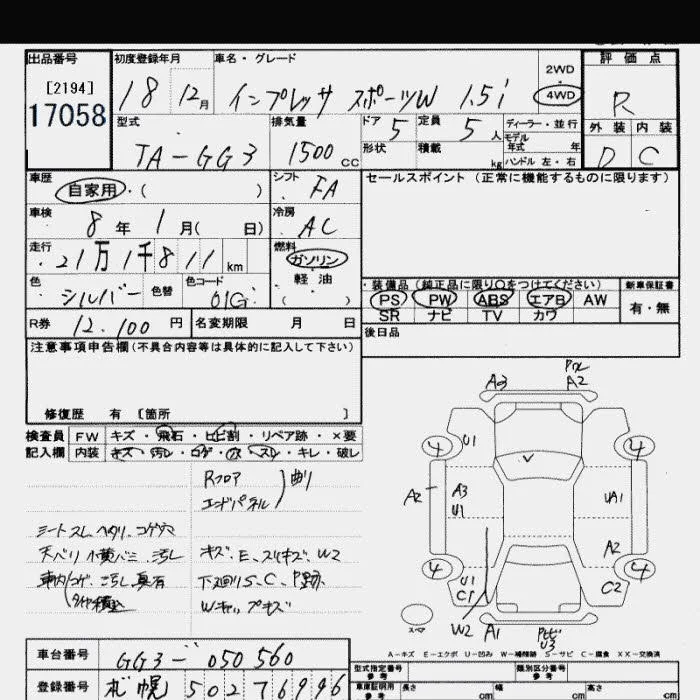 出品番号 初度登録年月 車名・グレード 評価点
[2194]
17058
18 12月 インプレッサ スポーツW 1.5i 2WD 4WD R
型式 排気量 ドア 5 定員 5人 ディーラー・並行 外装 内装
TA-GG3 1500cc 形状 積載 kg モデル年式 年 ハンドル 左・右 D C
車歴 シフト FA セールスポイント (正常に機能するものに限ります)
自家用・( )
車検 冷房 AC
8年 1月( 日)
走行 燃料 ガソリン
21万1千811km 軽油
色 シルバー 色替 色コード 01G ( )
・装備品 (純正品に限り〇をつけてください) 新車保証書
PS PW ABS エアB AW 有・無
SR ナビ TV カワ
R券 12,100円 名変期限 月 日
後日品
注意事項申告欄(不具合内容等は具体的に記入して下さい)
修復歴 有 [箇所 ]
検査員 FW キズ・飛石・ヒビ割・リペア跡・×要
記入欄 内装 キズ・汚レ・コゲ・穴・スレ・キレ・破レ
Rフロア
エンドパネル 曲り
シートスレ、ヘタリ、コゲ穴
キズ、E、スリキズ、W2
下廻りS、C、P跡、
Wキャップキズ
A3 A2
4 U1 4
A2 A3 U1 UA1
A2
4 U1 C1 C2 4
スペア W2 A1 U3
A-キズ E-エクボ U-凹み W-補修跡 S-サビ C-腐食 XX-交換済
車台番号 GG3-050560
型式指定番号 参考 類別区分番号 参考
登録番号 札幌 502 7 6996
車庫証明用 参考 長さ cm 幅 cm 高さ cm